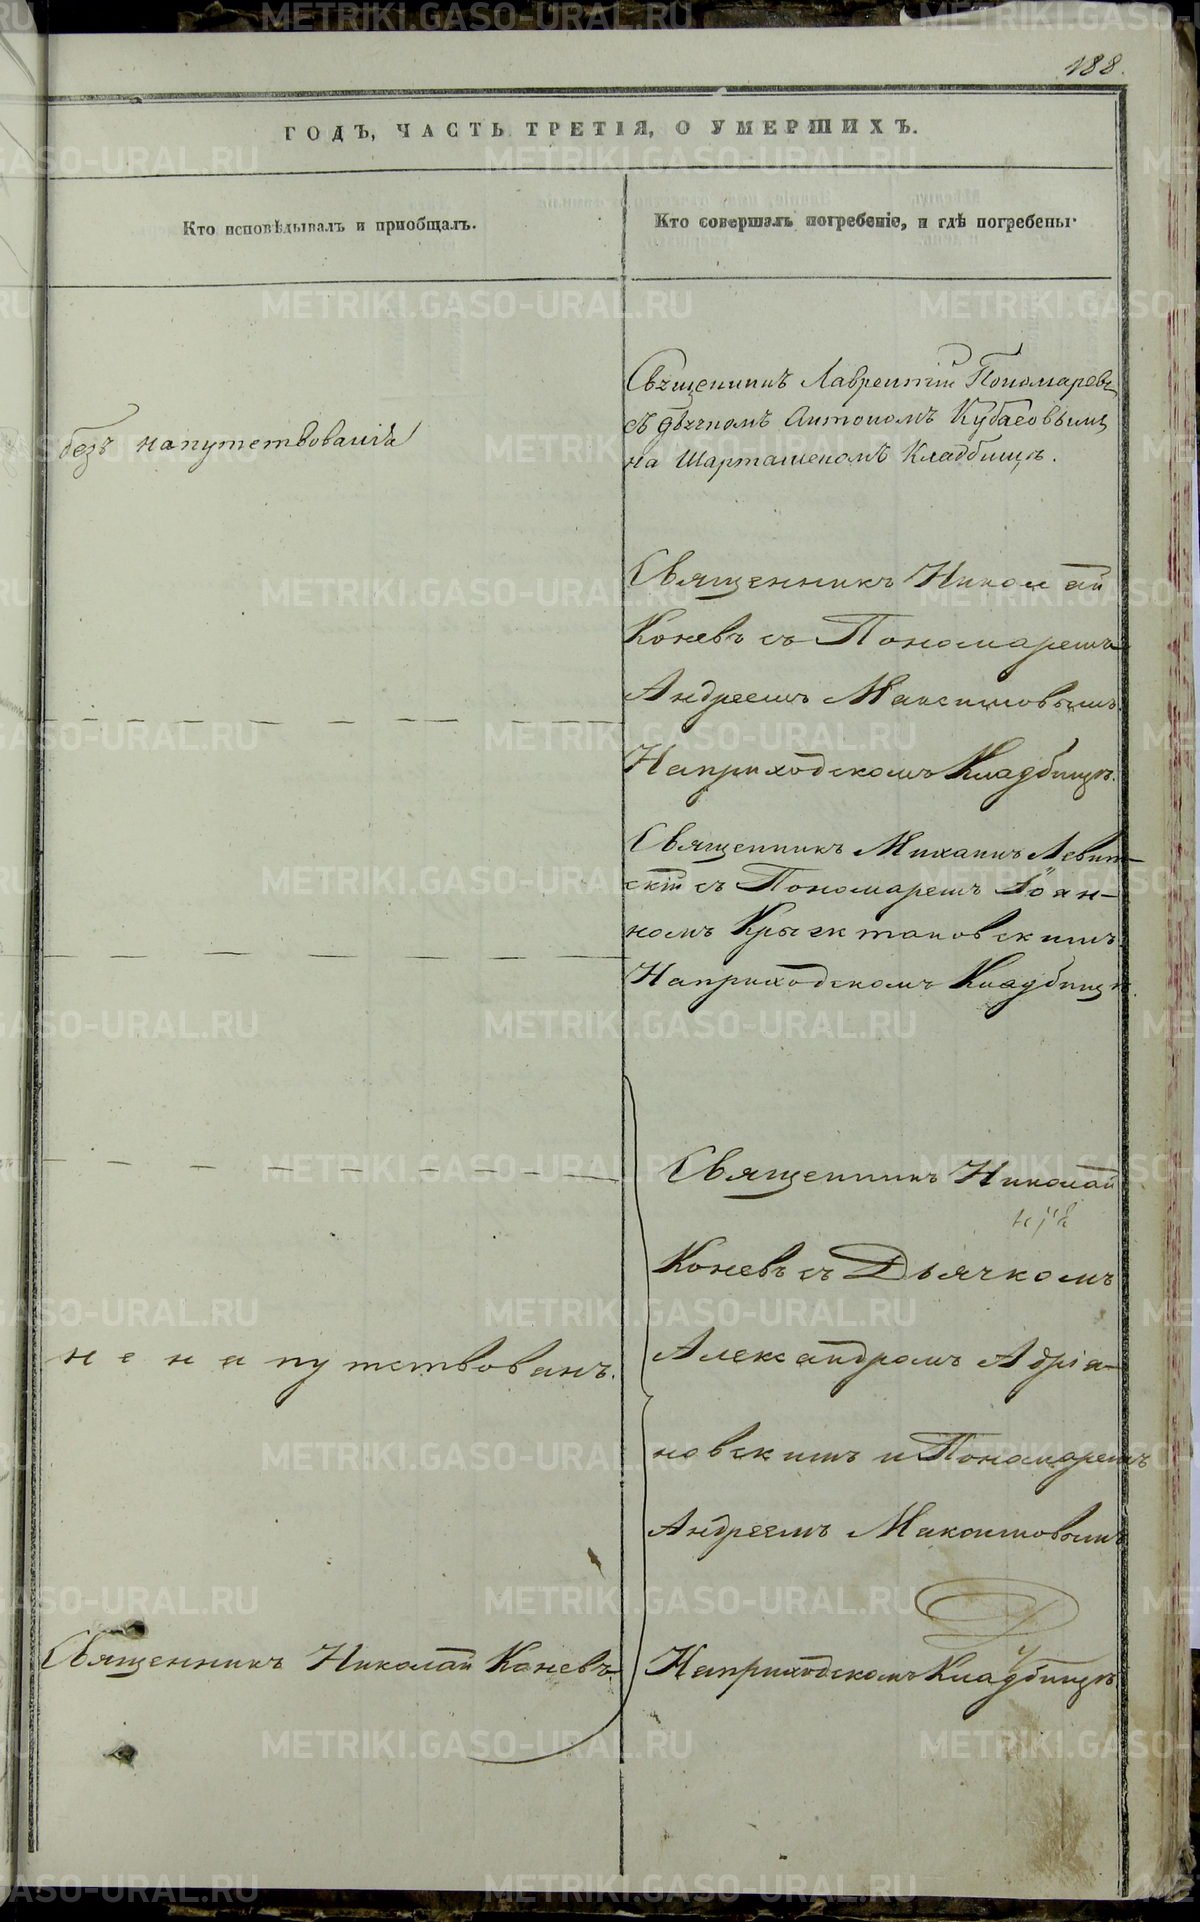 188.
ГОДЪ, ЧАСТЬ ТРЕТІЯ, О УМЕРШИХЪ.
Кто исповѣдывалъ и приобщалъ.
Кто совершалъ погребеніе, и гдѣ погребены.
Священникъ Лаврентій Пономаревъ
съ дьячкомъ Антономъ Кубасовымъ
безъ напутствованія
на Шарташскомъ Кладбищѣ.
Священникъ Николай
Коневъ съ Пономаремъ
Андреемъ Максимовымъ
На приходскомъ Кладбищѣ.
Священникъ Михаилъ Левит-
скій съ Пономаремъ Іоан-
номъ Крысктановскимъ
На приходскомъ Кладбищѣ.
Священникъ Николай
Коневъ съ Дьячкомъ
не напутствованъ.
Александромъ Адріа-
новскимъ и Пономаремъ
Андреемъ Максимовымъ
Священникъ Николай Коневъ
На приходскомъ Кладбищѣ
METRIKI.GASO-URAL.RU